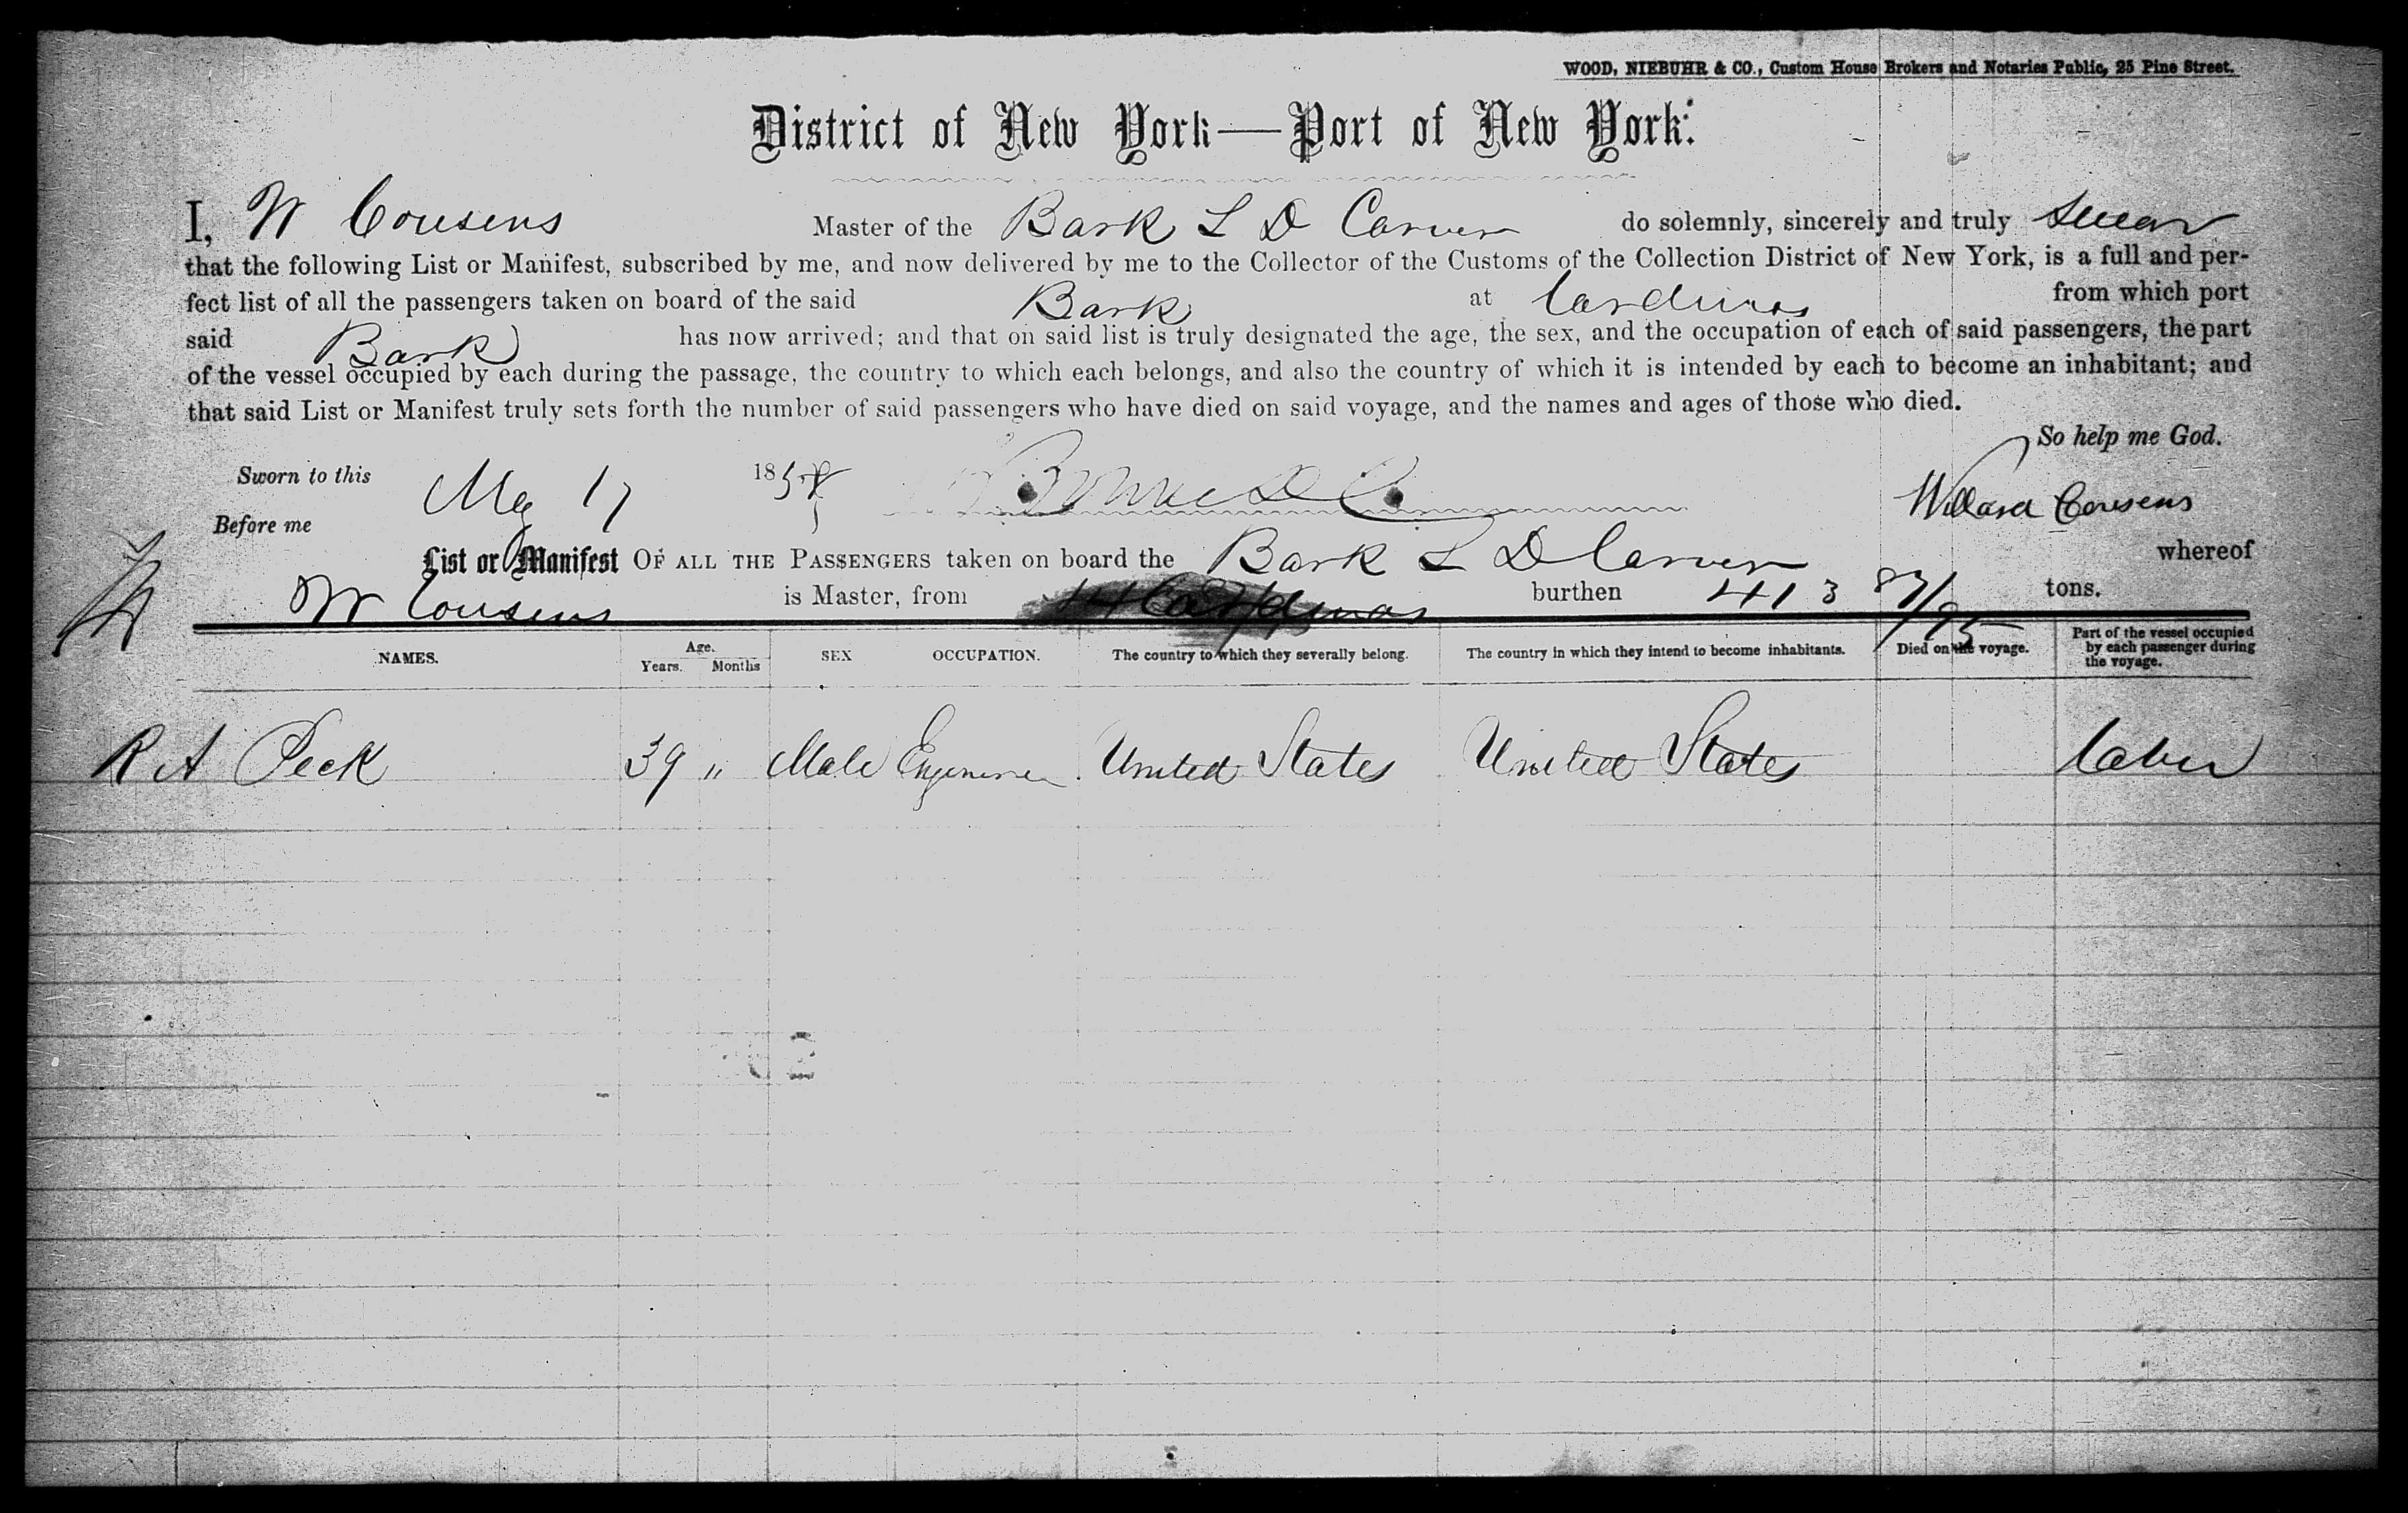 WOOD, NIEBUHR & CO., Custom House Brokers and Notaries Public, 25 Pine Street.
District of New York—Port of New York:
I, W Cousens Master of the Bark L D Carver do solemnly, sincerely and truly swear
that the following List or Manifest, subscribed by me, and now delivered by me to the Collector of the Customs of the Collection District of New York, is a full and per-
fect list of all the passengers taken on board of the said Bark at Cardenas from which port
said Bark has now arrived; and that on said list is truly designated the age, the sex, and the occupation of each of said passengers, the part
of the vessel occupied by each during the passage, the country to which each belongs, and also the country of which it is intended by each to become an inhabitant; and
that said List or Manifest truly sets forth the number of said passengers who have died on said voyage, and the names and ages of those who died.
So help me God.
Sworn to this May 17 185
Willard Cousens
Before me
List or Manifest OF ALL THE PASSENGERS taken on board the Bark L D Carver whereof
W Cousens is Master, from Cardenas burthen 413 87/95 tons.
NAMES. Age. Years. Months SEX OCCUPATION. The country to which they severally belong. The country in which they intend to become inhabitants. Died on the voyage. Part of the vessel occupied by each passenger during the voyage.
R A Peck 39 " Male Engineer United States United States Cabin